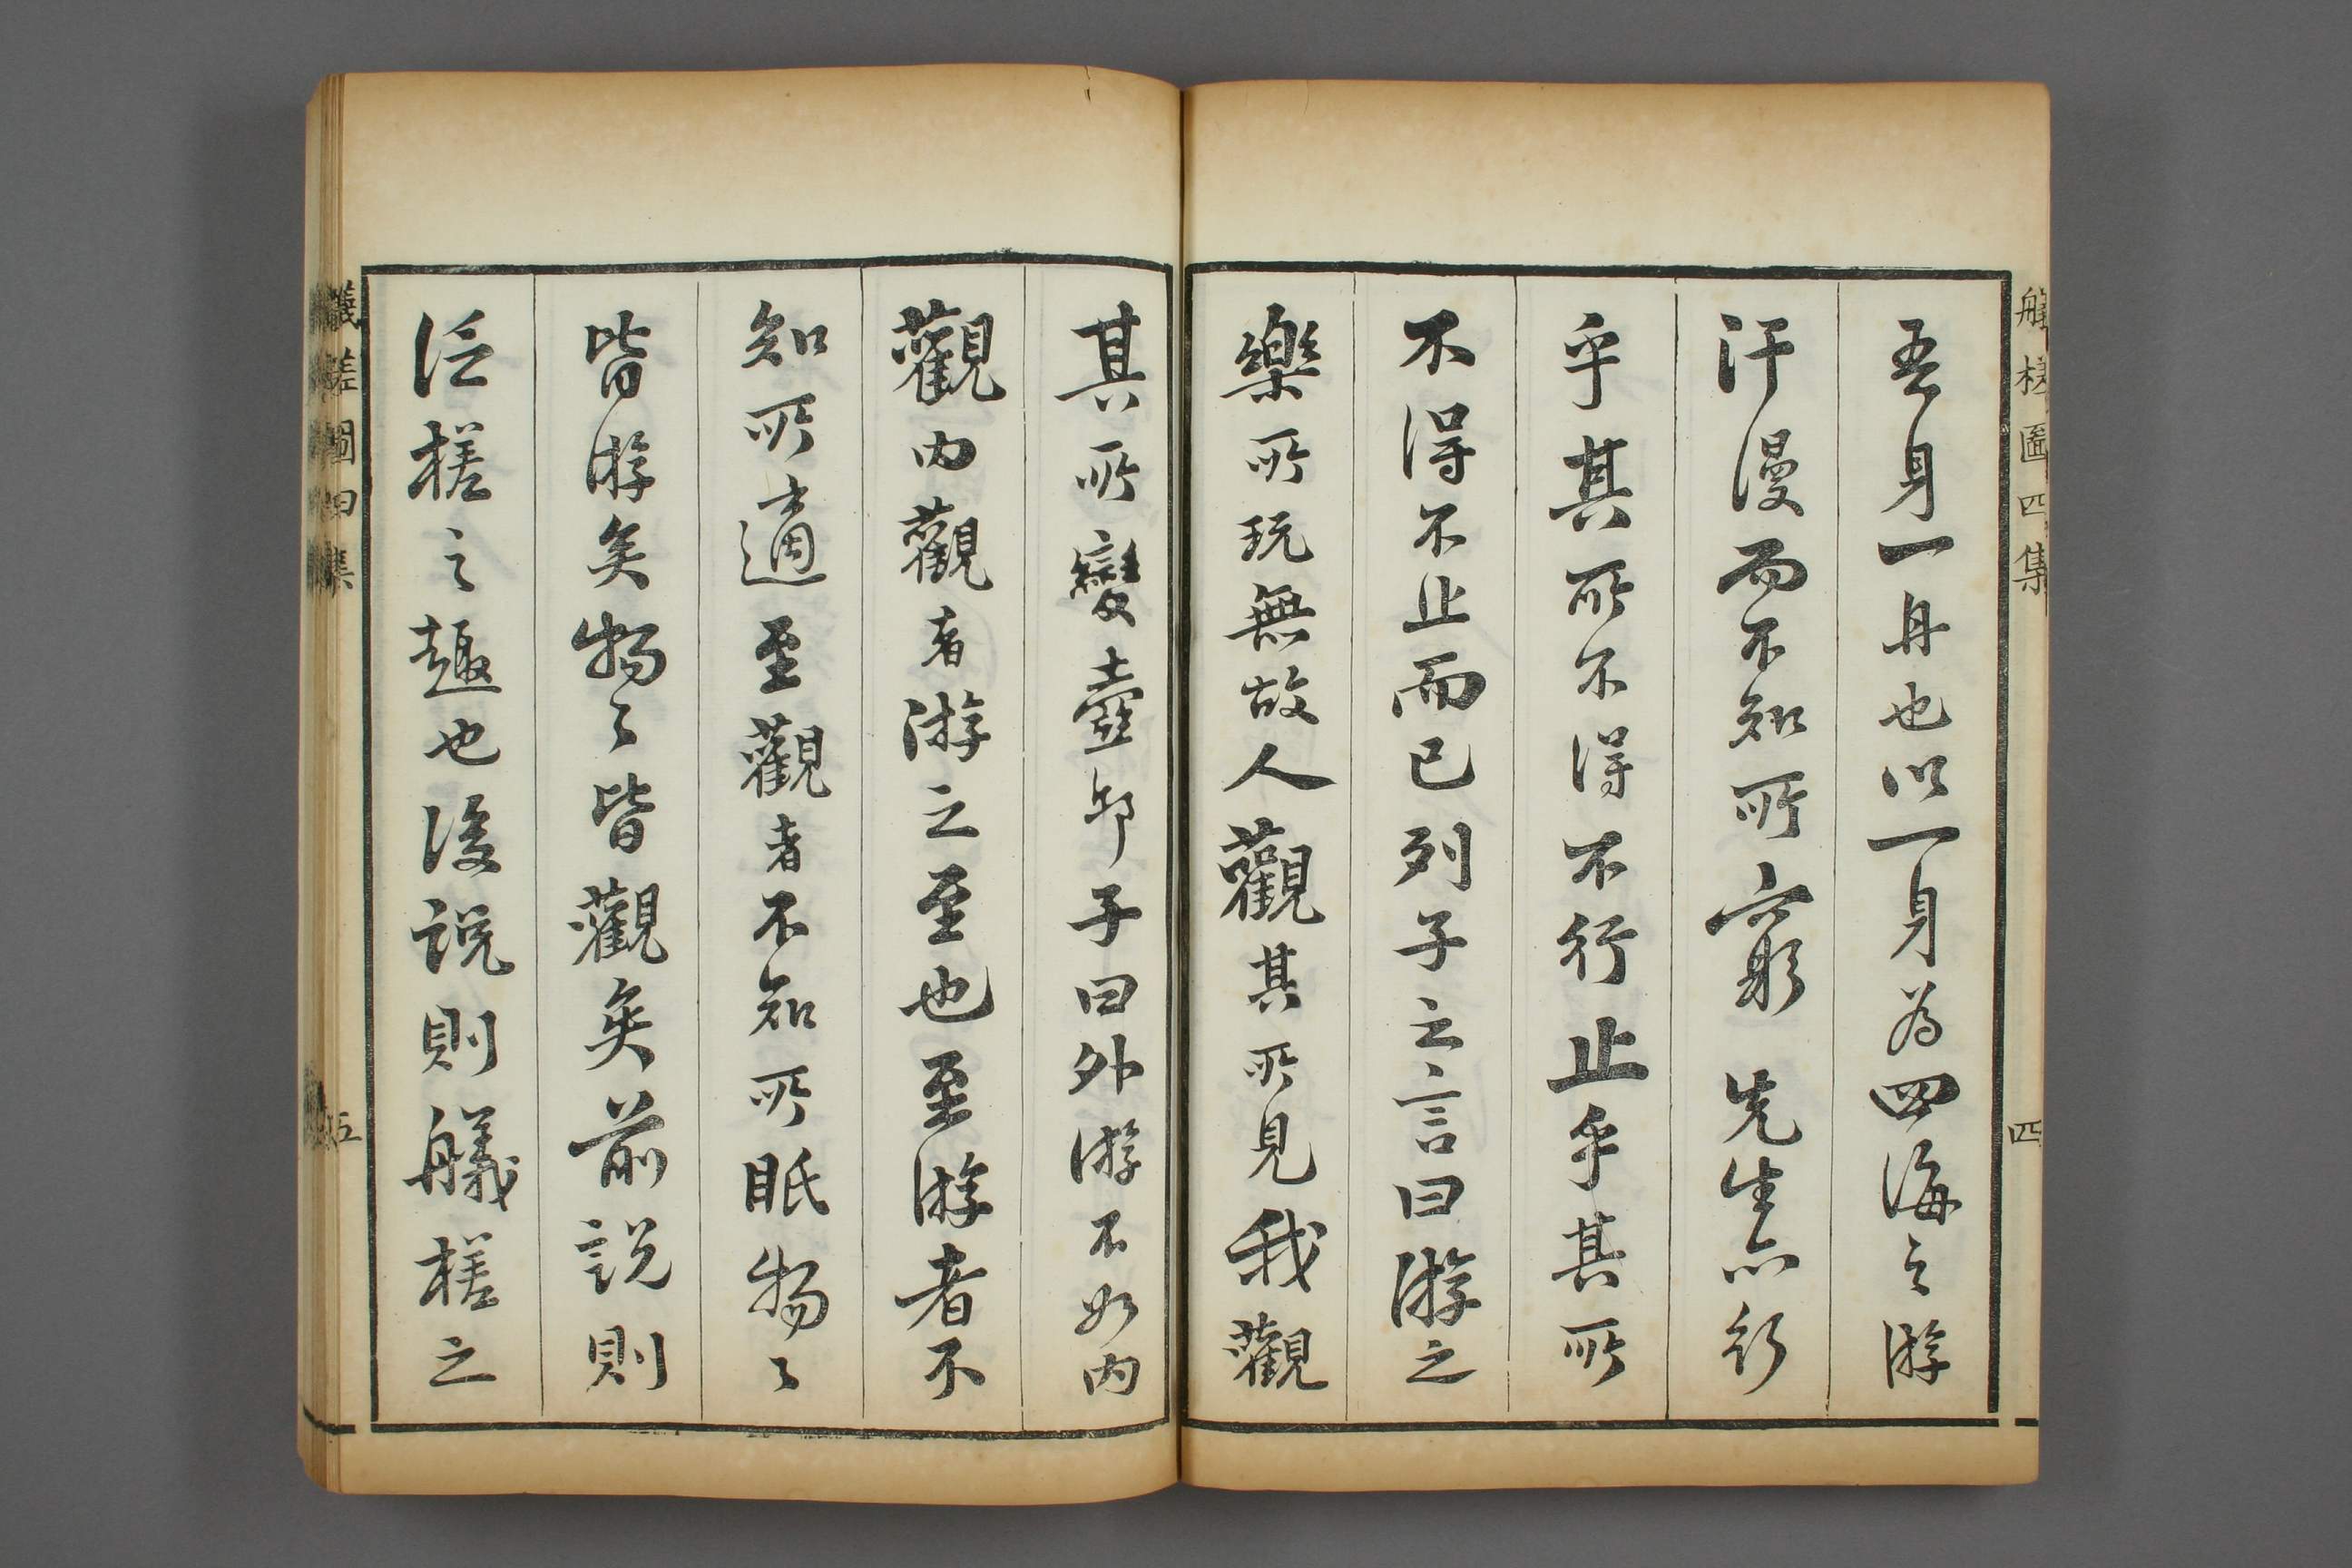 吾身一舟也以一身為四海之游
汗漫而不知所窮 先生亦行
乎其所不得不行止乎其所
不得不止而已列子之言曰游之
樂所玩無故人觀其所見我觀
其所變壺邱子曰外游不如內
觀內觀者游之至也至游者不
知所適至觀者不知所眂物〻
皆游矣物〻皆觀矣前說則
泛槎之趣也後說則艤槎之
艤槎圖四集
四
艤槎圖四集
五